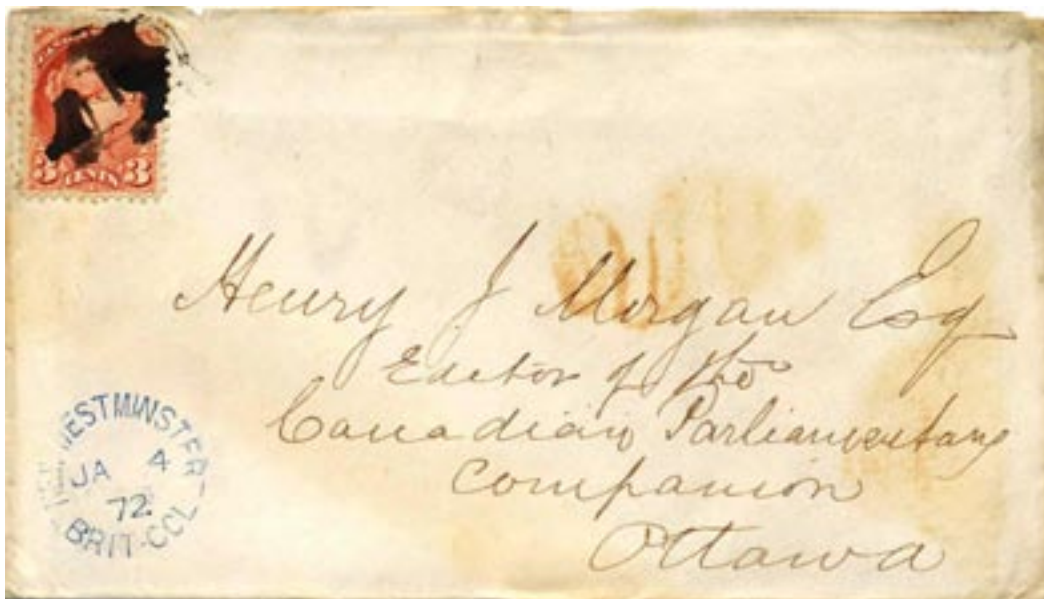 3 CENTS 3
Henry J Morgan Esq
Editor of the
Canadian Parliamentary
Companion
Ottawa
NEW WESTMINSTER
JA 4
72.
BRIT-COL